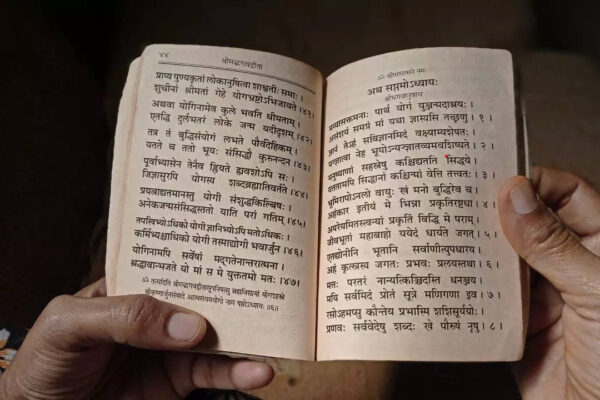 ४४
श्रीमद्भगवद्गीता
प्राप्य पुण्यकृतां लोकानुषित्वा शाश्वतीः समाः ।
शुचीनां श्रीमतां गेहे योगभ्रष्टोऽभिजायते ।४१।
अथवा योगिनामेव कुले भवति धीमताम् ।
एतद्धि दुर्लभतरं लोके जन्म यदीदृशम् ।४२।
तत्र तं बुद्धिसंयोगं लभते पौर्वदेहिकम् ।
यतते च ततो भूयः संसिद्धौ कुरुनन्दन ।४३।
पूर्वाभ्यासेन तेनैव ह्रियते ह्यवशोऽपि सः ।
जिज्ञासुरपि योगस्य शब्दब्रह्मातिवर्तते ।४४।
प्रयत्नाद्यतमानस्तु योगी संशुद्धकिल्बिषः ।
अनेकजन्मसंसिद्धस्ततो याति परां गतिम् ।४५।
तपस्विभ्योऽधिको योगी ज्ञानिभ्योऽपि मतोऽधिकः ।
कर्मिभ्यश्चाधिको योगी तस्माद्योगी भवार्जुन ।४६।
योगिनामपि सर्वेषां मद्गतेनान्तरात्मना ।
श्रद्धावान्भजते यो मां स मे युक्ततमो मतः ।४७।
ॐ तत्सदिति श्रीमद्भगवद्गीतासूपनिषत्सु ब्रह्मविद्यायां योगशास्त्रे
श्रीकृष्णार्जुनसंवादे आत्मसंयमयोगो नाम षष्ठोऽध्यायः ॥६॥
अथ सप्तमोऽध्यायः
श्रीभगवानुवाच
पार्थ योगं युञ्जन्मदाश्रयः ।
असंशयं समग्रं मां यथा ज्ञास्यसि तच्छृणु । १ ।
ज्ञानं तेऽहं सविज्ञानमिदं वक्ष्याम्यशेषतः ।
यज्ज्ञात्वा नेह भूयोऽन्यज्ज्ञातव्यमवशिष्यते । २ ।
मनुष्याणां सहस्रेषु कश्चिद्यतति सिद्धये ।
यततामपि सिद्धानां कश्चिन्मां वेत्ति तत्त्वतः । ३ ।
भूमिरापोऽनलो वायुः खं मनो बुद्धिरेव च ।
अहंकार इतीयं मे भिन्ना प्रकृतिरष्टधा । ४ ।
अपरेयमितस्त्वन्यां प्रकृतिं विद्धि मे पराम् ।
जीवभूतां महाबाहो ययेदं धार्यते जगत् । ५ ।
एतद्योनीनि भूतानि सर्वाणीत्युपधारय ।
अहं कृत्स्नस्य जगतः प्रभवः प्रलयस्तथा । ६ ।
मत्तः परतरं नान्यत्किञ्चिदस्ति धनञ्जय ।
मयि सर्वमिदं प्रोतं सूत्रे मणिगणा इव । ७ ।
रसोऽहमप्सु कौन्तेय प्रभास्मि शशिसूर्ययोः ।
प्रणवः सर्ववेदेषु शब्दः खे पौरुषं नृषु । ८ ।